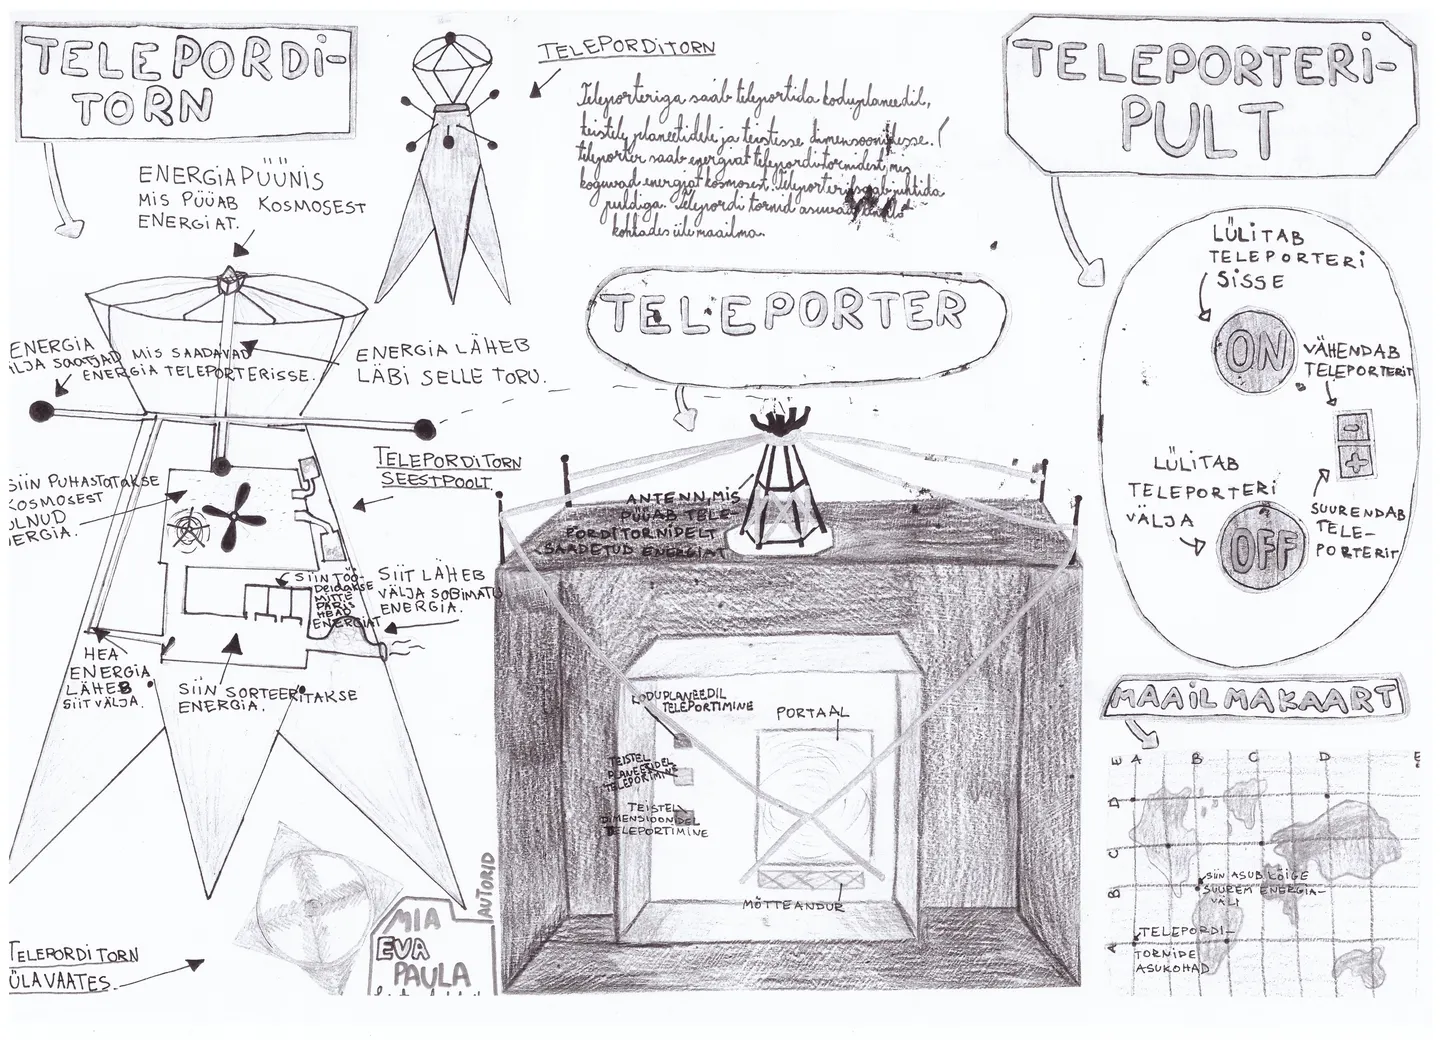 TELEPORDI-
TORN
ENERGIAPÜÜNIS
MIS PÜÜAB KOSMOSEST
ENERGIAT.
ENERGIA
LJA SAATJAD MIS SAADAVAD
ENERGIA TELEPORTERISSE.
ENERGIA LÄHEB
LÄBI SELLE TORU.
SIIN PUHASTATAKSE
KOSMOSEST
ULNUD
ERGIA.
TELEPORDITORN
SEESTPOOLT
SIIN TÖÖ-
DELDAKSE
MITTE
PÄRIS
HEAD
ENERGIAT
SIIT LÄHEB
VÄLJA SOBIMATU
ENERGIA.
HEA
ENERGIA
LÄHEB
SIIT VÄLJA.
SIIN SORTEERITAKSE
ENERGIA.
TELEPORDITORN
ÜLAVAATES.
AUTORID
MIA
EVA
PAULA
TELEPORDITORN
Teleporteriga saab teleportida koduplaneedil,
teistele planeetidele ja teistesse dimensioonidesse.
teleporter saab energiat teleporditornidest, mis
koguvad energiat kosmosest. Teleporterit saab juhtida
puldiga. Telepordi tornid asuvad
kohtades üle maailma.
TELEPORTER
ANTENN, MIS
PÜÜAB TELE-
PORDITORNIDELT
SAADETUD ENERGIAT
KODUPLANEEDIL
TELEPORTIMINE
TEISTEL
PLANEETIDEL
TELEPORTIMINE
TEISTEL
DIMENSIOONIDEL
TELEPORTIMINE
PORTAAL
MÕTTEANDUR
TELEPORTERI-
PULT
LÜLITAB
TELEPORTERI
SISSE
ON
VÄHENDAB
TELEPORTERIT
-
+
SUURENDAB
TELE-
PORTERIT
LÜLITAB
TELEPORTERI
VÄLJA
OFF
MAAILMAKAART
E A B C D E
D
C
B
A
SIIN ASUB KÕIGE
SUUREM ENERGIA-
VÄLI
TELEPORDI-
TORNIDE
ASUKOHAD